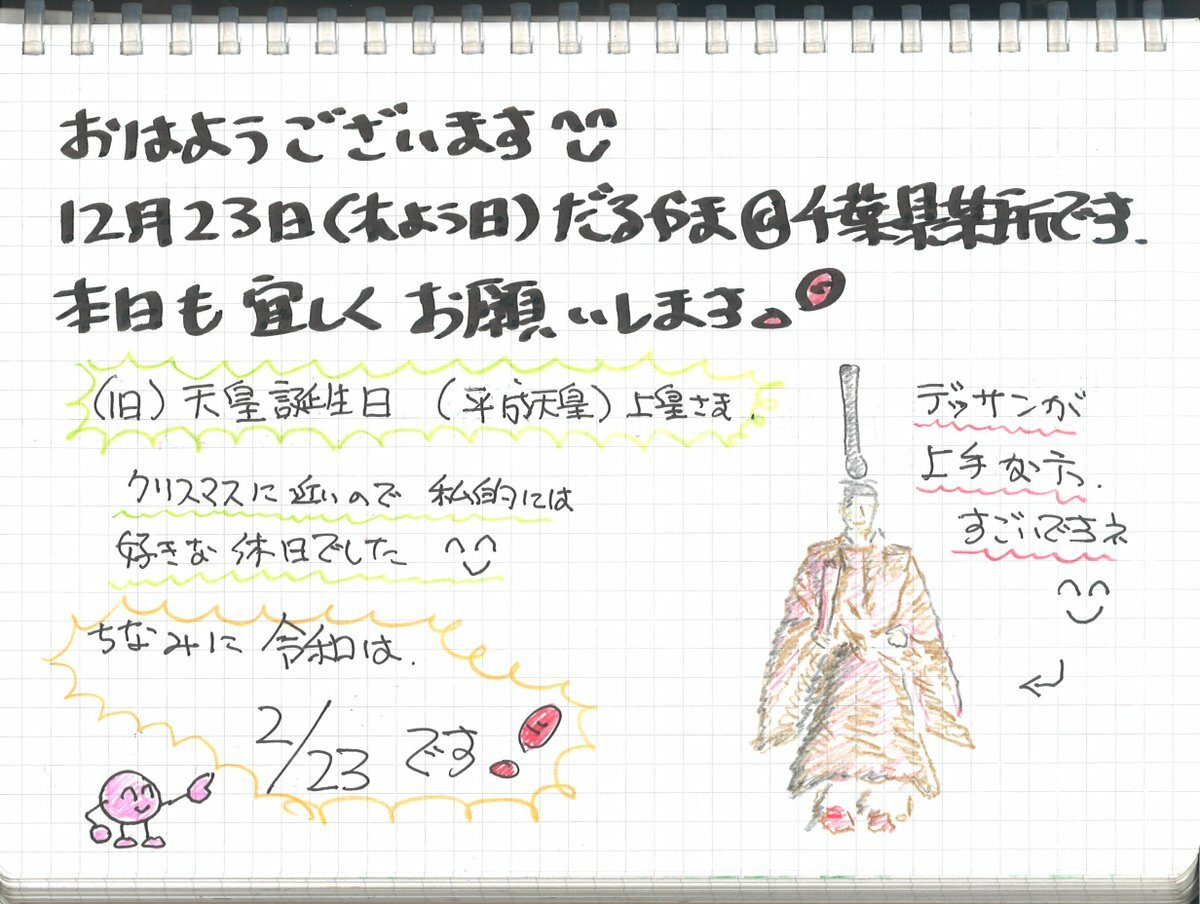 おはようございます
12月23日(木よう日)だるやま@千葉県某所です.
本日も宜しくお願いします。
(旧)天皇誕生日 (平成天皇)上皇さま.
クリスマスに近いので 私的には
好きな休日でした
ちなみに 令和は.
2/23 です!
デッサンが
上手な方.
すごいですネ